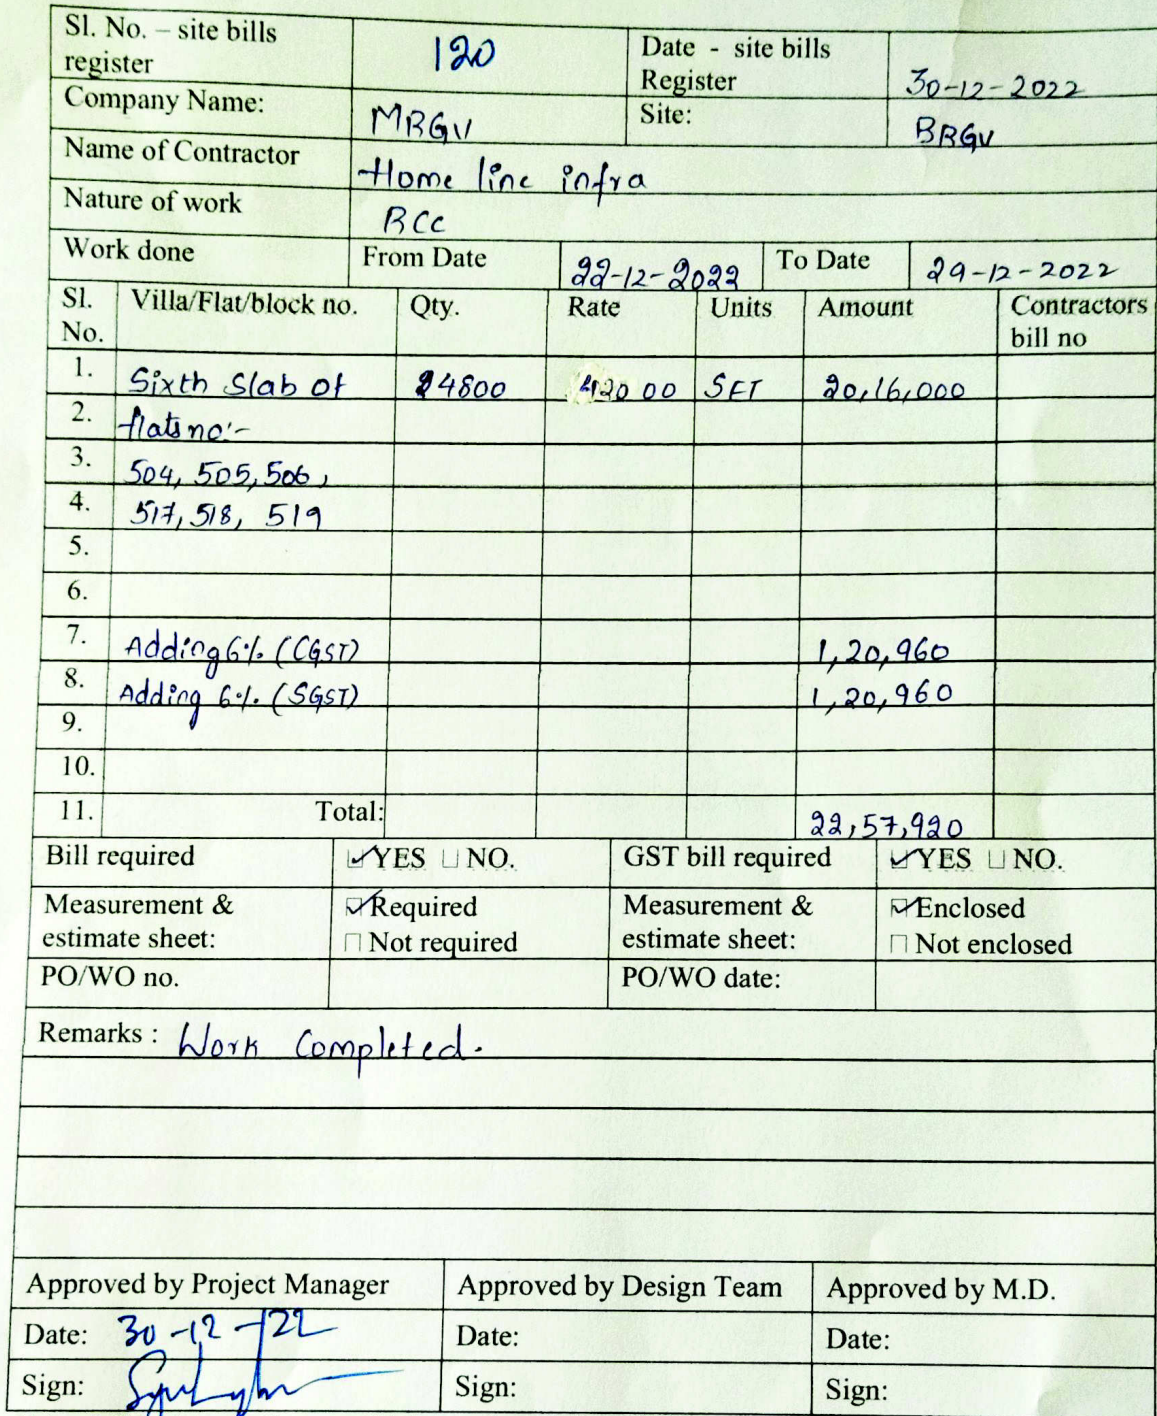 Sl. No. – site bills register 120 Date - site bills Register 30-12-2022
Company Name: MRGV Site: BRGV
Name of Contractor Home line infra
Nature of work RCC
Work done From Date 22-12-2022 To Date 29-12-2022
Sl. No. Villa/Flat/block no. Qty. Rate Units Amount Contractors bill no
1. Sixth Slab of 4800 420 00 SFT 20,16,000
2. flats no:-
3. 504, 505, 506,
4. 517, 518, 519
5.
6.
7. Adding 6% (CGST) 1,20,960
8. Adding 6% (SGST) 1,20,960
9.
10.
11. Total: 22,57,920
Bill required YES NO. GST bill required YES NO.
Measurement & estimate sheet: Required Not required Measurement & estimate sheet: Enclosed Not enclosed
PO/WO no. PO/WO date:
Remarks : Work Completed.
Approved by Project Manager Approved by Design Team Approved by M.D.
Date: 30-12-22 Date: Date:
Sign: Sign: Sign: